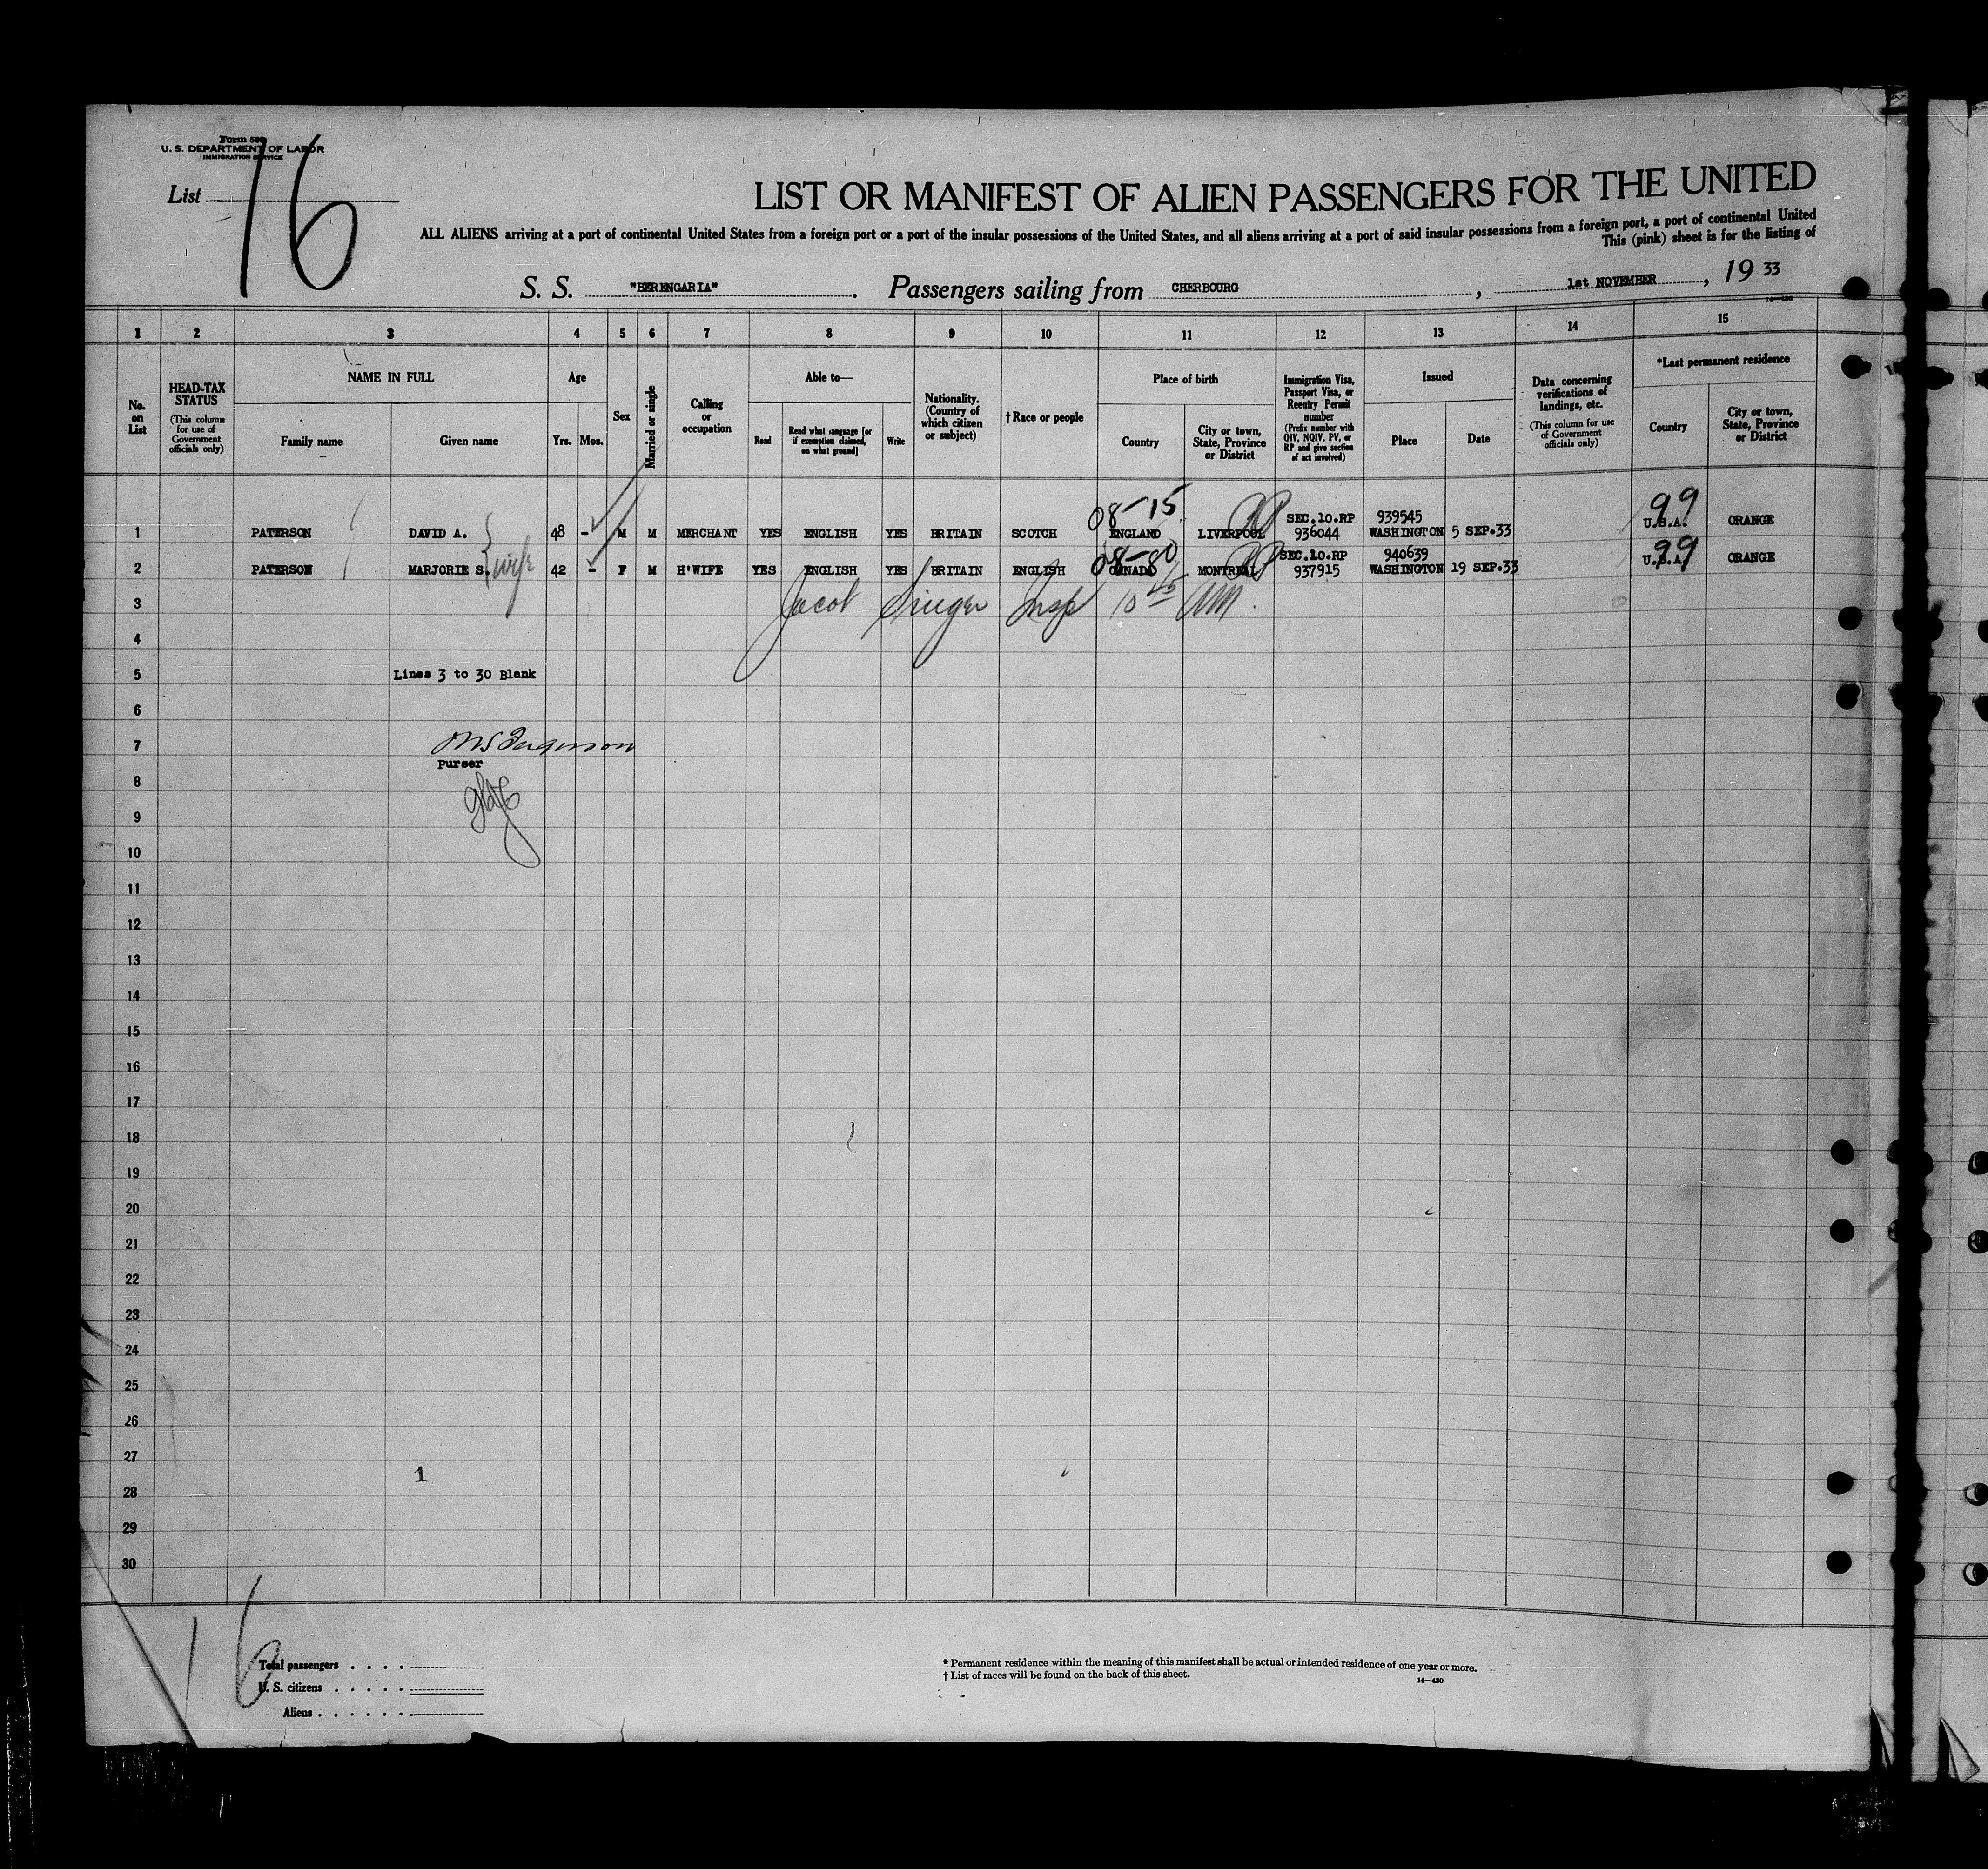 Form 500
U. S. DEPARTMENT OF LABOR
IMMIGRATION SERVICE
List 16
LIST OR MANIFEST OF ALIEN PASSENGERS FOR THE UNITED
ALL ALIENS arriving at a port of continental United States from a foreign port or a port of the insular possessions of the United States, and all aliens arriving at a port of said insular possessions from a foreign port, a port of continental United
This (pink) sheet is for the listing of
S. S. "BERENGARIA". Passengers sailing from CHERBOURG, 1st NOVEMBER, 19 33
1 2 3 4 5 6 7 8 9 10 11 12 13 14 15
No. on List
HEAD-TAX STATUS
(This column for use of Government officials only)
NAME IN FULL
Family name
Given name
Age
Yrs.
Mos.
Sex
Married or single
Calling or occupation
Able to—
Read
Read what language [or if exemption claimed, on what ground]
Write
Nationality. (Country of which citizen or subject)
†Race or people
Place of birth
Country
City or town, State, Province or District
Immigration Visa, Passport Visa, or Reentry Permit number
(Prefix number with QIV, NQIV, PV, or RP and give section of act involved)
Issued
Place
Date
Data concerning verifications of landings, etc.
(This column for use of Government officials only)
*Last permanent residence
Country
City or town, State, Province or District
08-15 SEC.10.RP 939545 99
1 PATERSON DAVID A. 48 - M M MERCHANT YES ENGLISH YES BRITAIN SCOTCH ENGLAND LIVERPOOL 936044 WASHINGTON 5 SEP.33 U.S.A. ORANGE
08-80 SEC.10.RP 940639 99
2 PATERSON MARJORIE S. wife 42 - F M H'WIFE YES ENGLISH YES BRITAIN ENGLISH CANADA MONTREAL 937915 WASHINGTON 19 SEP.33 U.S.A. ORANGE
3 Jacob Singer Insp 10 45 AM.
4
5 Lines 3 to 30 Blank
6
7
Purser
8
9
10
11
12
13
14
15
16
17
18
19
20
21
22
23
24
25
26
27
1
28
29
30
16
Total passengers
U. S. citizens
Aliens
* Permanent residence within the meaning of this manifest shall be actual or intended residence of one year or more.
† List of races will be found on the back of this sheet.
14—430